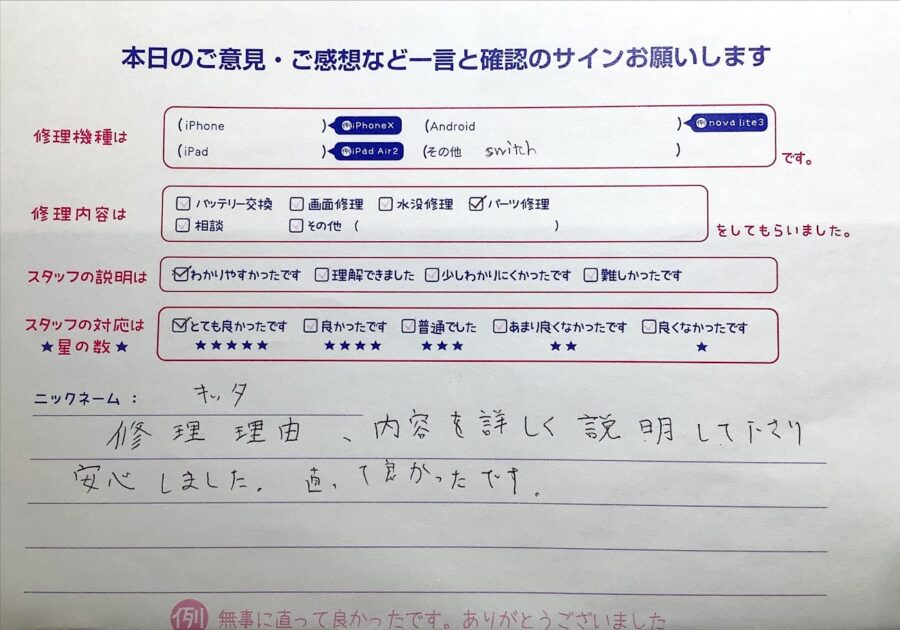 本日のご意見・ご感想など一言と確認のサインお願いします
修理機種は
(iPhone ) 例iPhoneX (Android ) 例nova lite3
(iPad ) 例iPad Air2 (その他 switch ) です。
修理内容は
バッテリー交換 画面修理 水没修理 パーツ修理
相談 その他 ( ) をしてもらいました。
スタッフの説明は わかりやすかったです 理解できました 少しわかりにくかったです 難しかったです
スタッフの対応は とても良かったです 良かったです 普通でした あまり良くなかったです 良くなかったです
★星の数★ ★★★★★ ★★★★ ★★★ ★★ ★
ニックネーム： キッタ
修理理由、内容を詳しく説明して下さり
安心しました。直って良かったです。
例 無事に直って良かったです。ありがとうございました